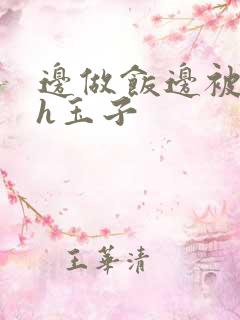 邊做飯邊被
h玉子
王華清